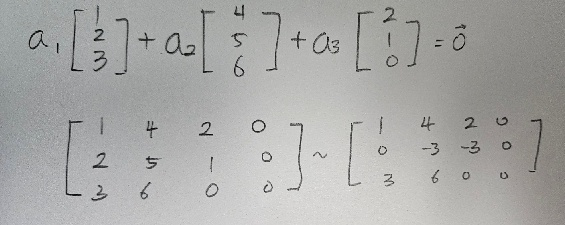 a₁ [1 2 3] + a₂ [4 5 6] + a₃ [2 1 0] = 0⃗
[1 4 2 0 ; 2 5 1 0 ; 3 6 0 0] ~ [1 4 2 0 ; 0 -3 -3 0 ; 3 6 0 0]